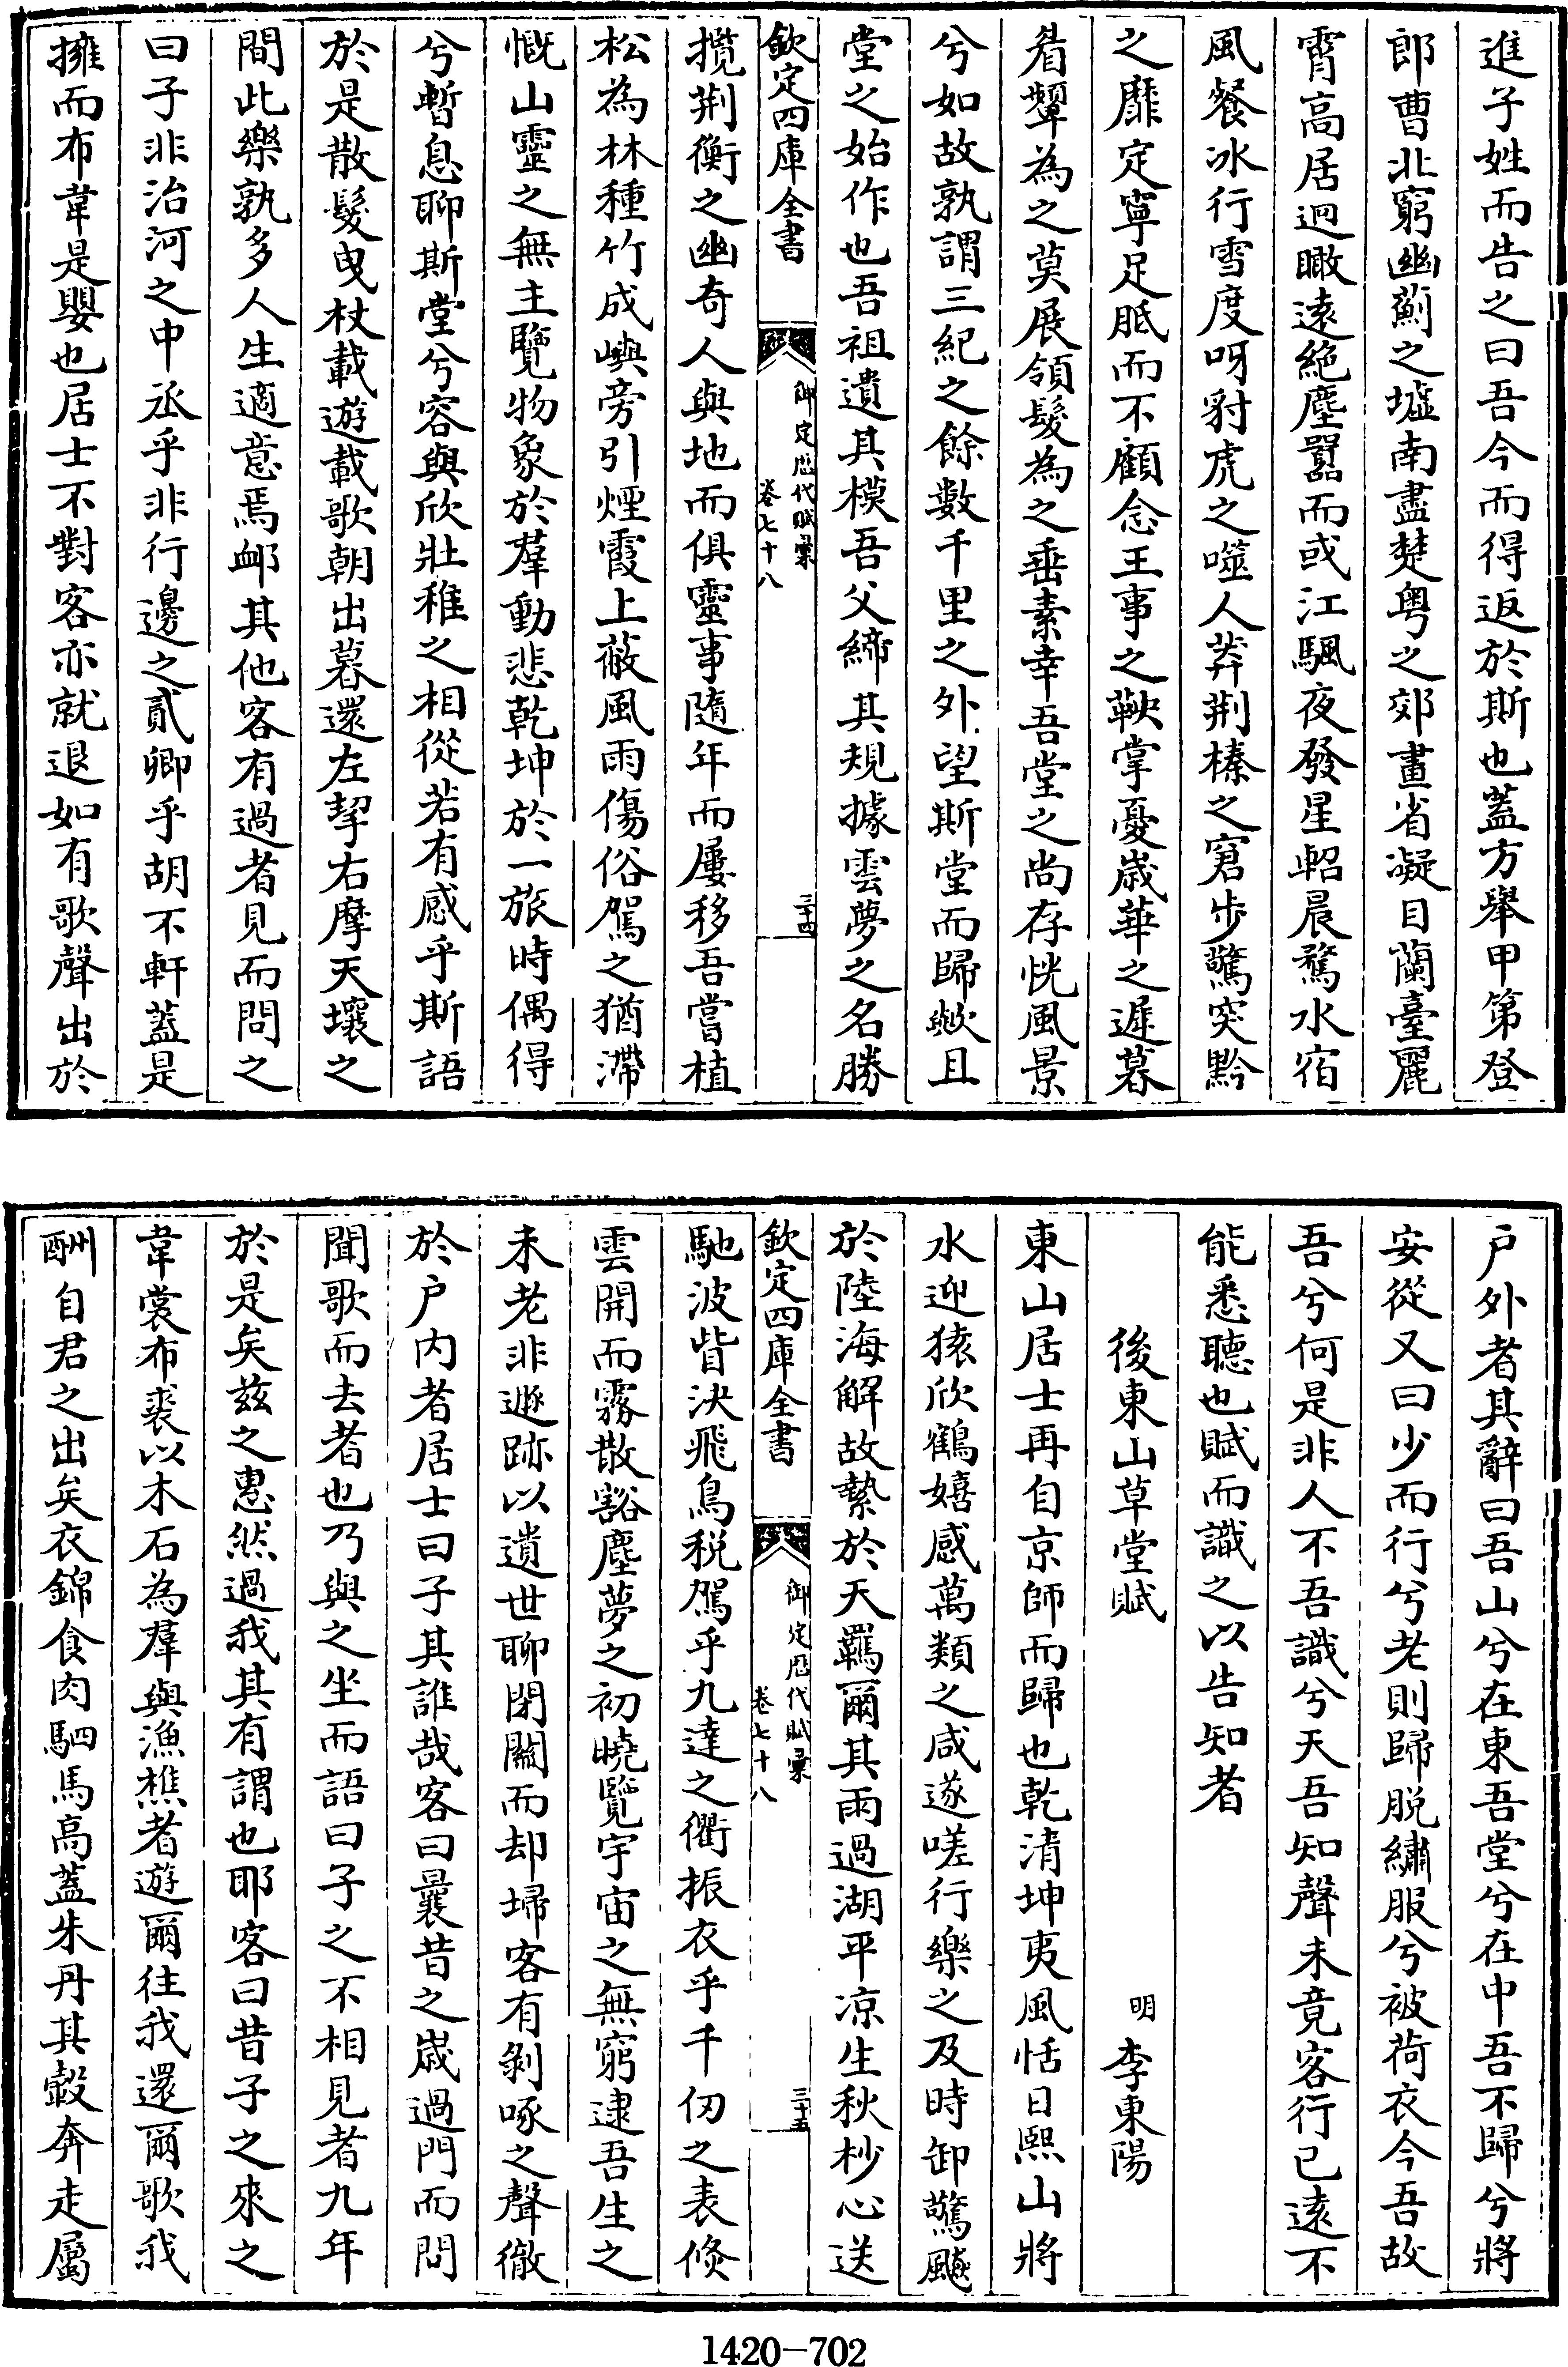 進子姓而告之曰吾今而得返於斯也蓋方舉甲第登
郎曹北窮幽薊之墟南盡楚粤之郊畫省凝目蘭臺麗
霄高居迥瞰遠絶塵囂而或江颿夜發星軺晨騖水宿
風餐冰行雪度呀豺虎之噬人莽荆榛之窘步驚突黔
之靡定寧足胝而不顧念王事之鞅掌憂嵗華之遲暮
眉顰為之莫展領髮為之垂素幸吾堂之尚存恍風景
兮如故孰謂三紀之餘數千里之外望斯堂而歸歟且
堂之始作也吾祖遺其模吾父締其規據雲夢之名勝
欽定四庫全書
御定歴代賦彙
卷七十八
三十四
攬荆衡之幽奇人與地而俱靈事隨年而屢移吾嘗植
松為林種竹成嶼旁引煙霞上蔽風雨傷俗駕之猶滯
慨山靈之無主覽物象於羣動悲乾坤於一旅時偶得
兮暫息聊斯堂兮容與欣壯稚之相從若有感乎斯語
於是散髮曳杖載遊載歌朝出暮還左挈右摩天壤之
間此樂孰多人生適意焉䘏其他客有過者見而問之
曰子非治河之中丞乎非行邊之貳卿乎胡不軒蓋是
擁而布韋是嬰也居士不對客亦就退如有歌聲出於
户外者其辭曰吾山兮在東吾堂兮在中吾不歸兮將
安從又曰少而行兮老則歸脱繡服兮被荷衣今吾故
吾兮何是非人不吾識兮天吾知聲未竟客行已遠不
能悉聽也賦而識之以告知者
後東山草堂賦 明 李東陽
東山居士再自京師而歸也乾清坤夷風恬日熙山將
水迎猿欣鶴嬉感萬類之咸遂嗟行樂之及時卸驚飈
於陸海解故縶於天羈爾其雨過湖平凉生秋杪心送
欽定四庫全書
御定歴代賦彙
卷七十八
三十五
馳波眥決飛鳥税駕乎九達之衢振衣乎千仭之表倐
雲開而霧散豁塵夢之初曉覽宇宙之無窮逮吾生之
未老非遯跡以遺世聊閉關而却埽客有剝啄之聲徹
於户内者居士曰子其誰哉客曰曩昔之嵗過門而問
聞歌而去者也乃與之坐而語曰子之不相見者九年
於是矣兹之惠然過我其有謂也耶客曰昔子之來之
韋裳布裘以木石為羣與漁樵者遊爾往我還爾歌我
酬自君之出矣衣錦食肉駟馬高蓋朱丹其轂奔走屬
1420—702